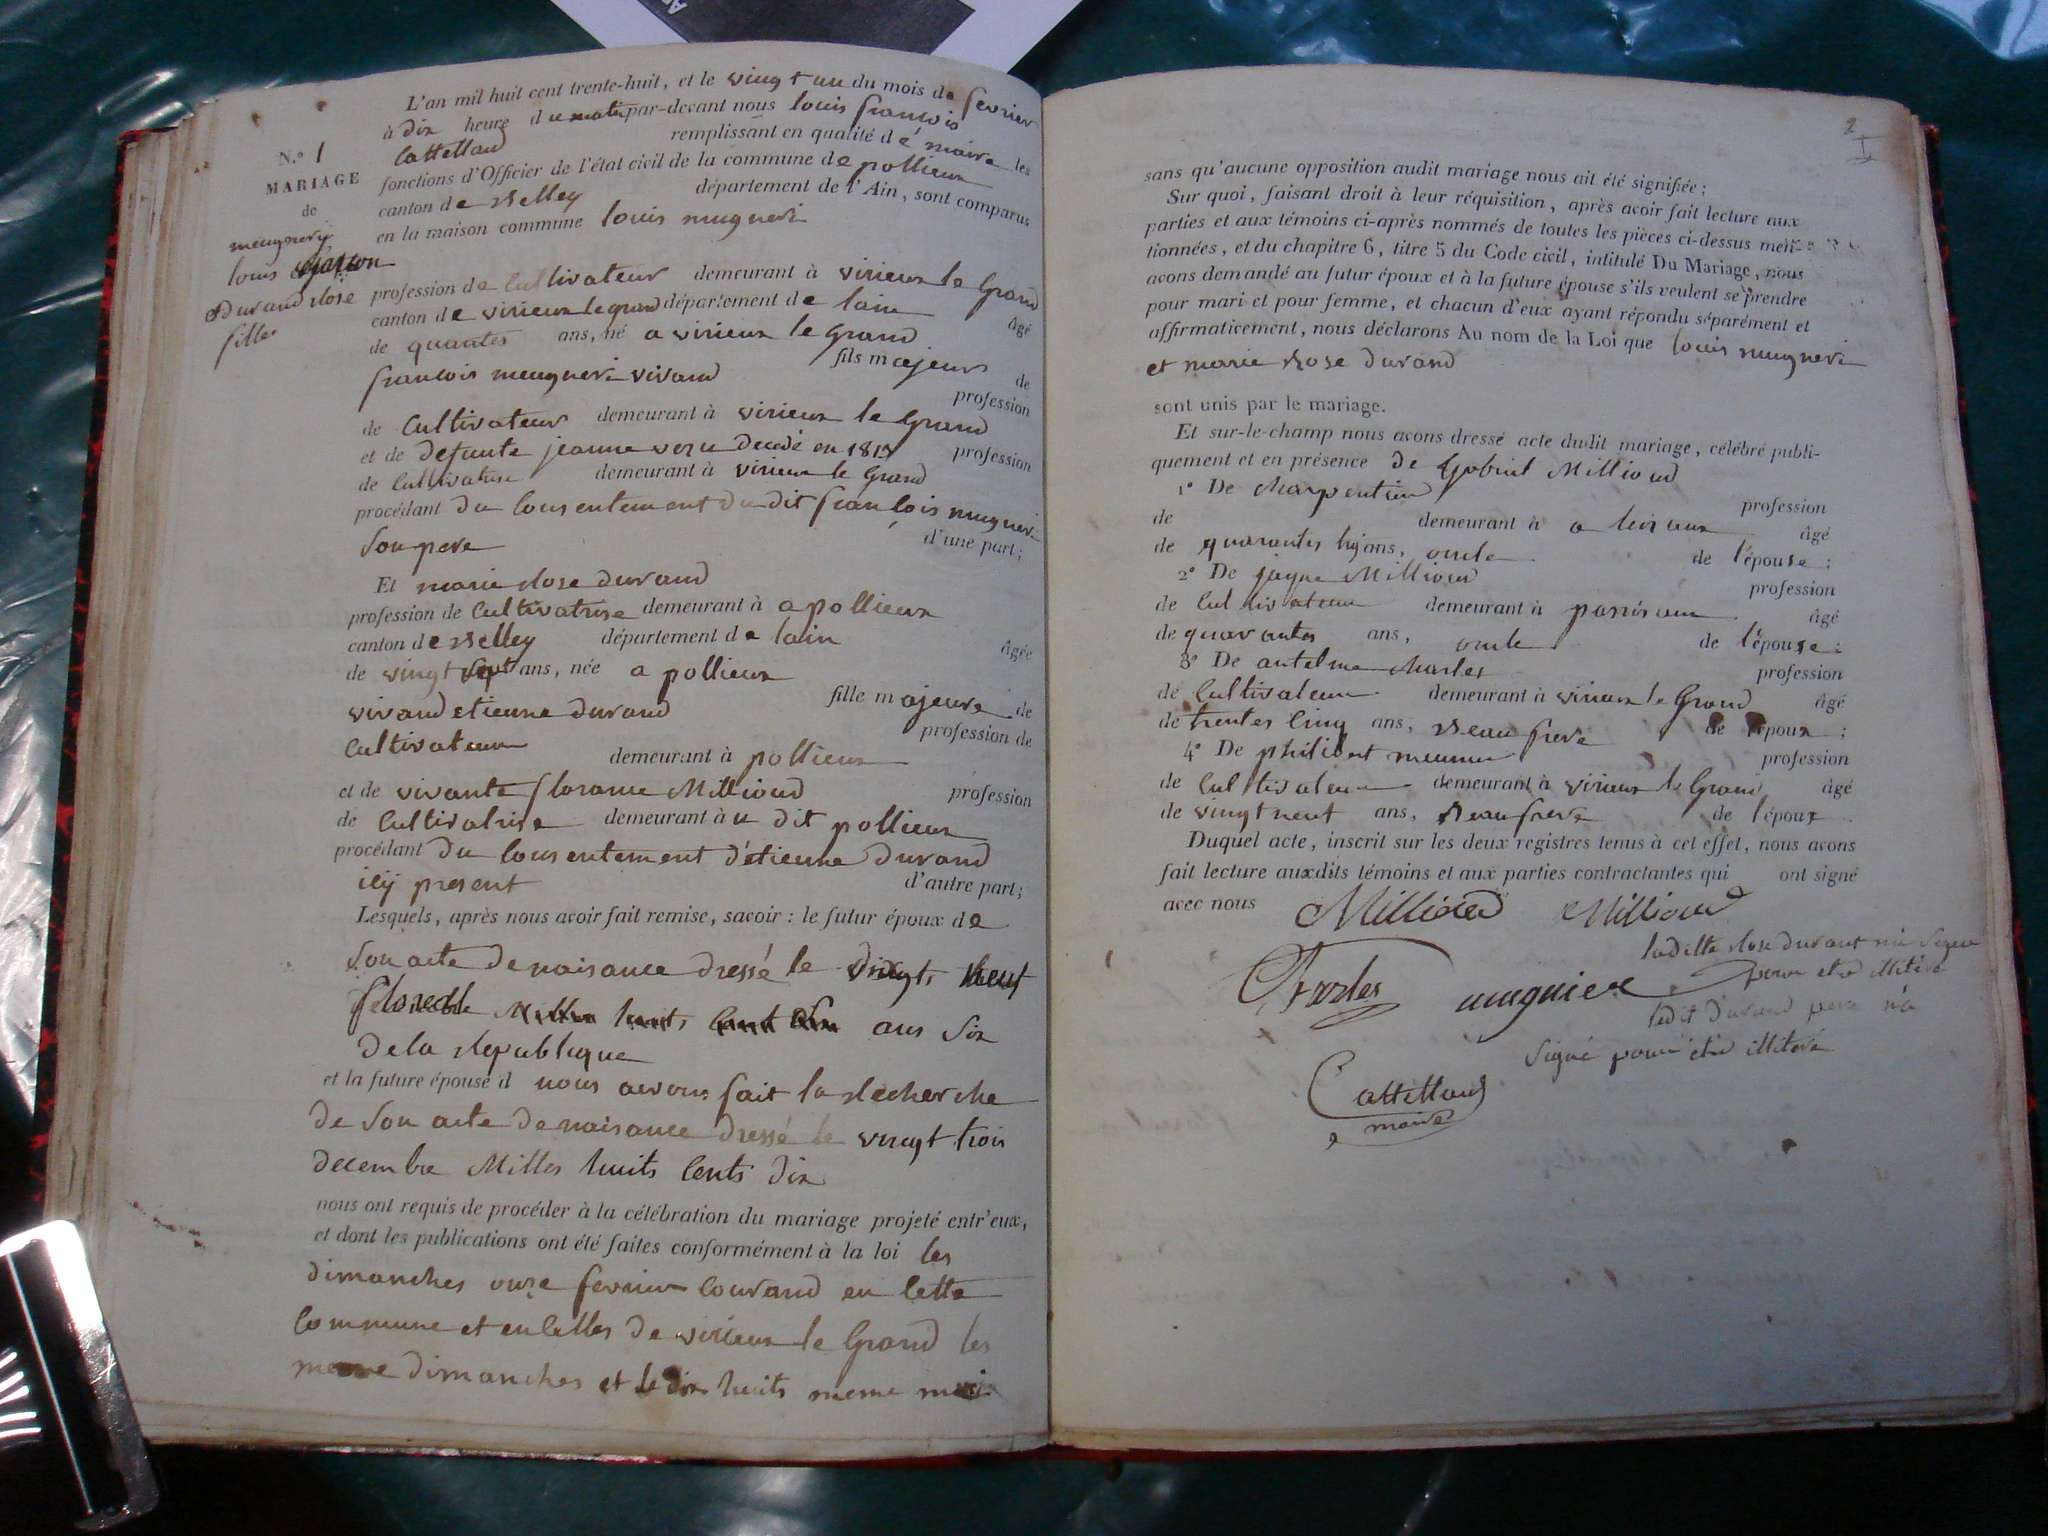 N.° 1
MARIAGE
de
meugnery
louis garson
Durand Rose
fille
L'an mil huit cent trente-huit, et le vingt un du mois de fevrier
à dix heure du matin par-devant nous louis francois
Cattelland remplissant en qualité de maire les
fonctions d'Officier de l'état civil de la commune de pollieux
canton de Belley département de l'Ain, sont comparus
en la maison commune louis mugneri
profession de Cultivateur demeurant à virieux le Grand
canton de virieux le grand département de lain âgé
de quantes ans, né a virieux le Grand
fils majeur de
francois meugneri vivand profession
de Cultivateur demeurant à virieux le Grand
et de defunte jeanne decedé en profession
de Cultivatrise demeurant à virieux le Grand
procédant du consentement du dit francois mugneri
son pere d'une part;
Et marie Rose durand
profession de Cultivatrise demeurant à a pollieux
canton de Belley département de lain âgée
de vingt sept ans, née a pollieux
fille majeure de
vivand etienne durand profession de
Cultivateur demeurant à pollieux
et de vivante floranse Millioud profession
de Cultivatrise demeurant à u dit pollieux
procédant du consentement d'etienne durand
icij present d'autre part;
Lesquels, après nous avoir fait remise, savoir: le futur époux de
son acte de naisance dressé le neuf
floreal ans six
de la Republique
et la future épouse d nous avons fait la Recherche
de son acte de naisance dressé le vingt trois
decembre Milles huits cents dix
nous ont requis de procéder à la célébration du mariage projeté entr'eux,
et dont les publications ont été faites conformément à la loi les
dimanches onze fevrier courand en cette
commune et en celles de virieux le Grand les
meme dimanches et le dix huits meme moi
2
sans qu'aucune opposition audit mariage nous ait été signifiée;
Sur quoi, faisant droit à leur réquisition, après avoir fait lecture aux
parties et aux témoins ci-après nommés de toutes les pièces ci-dessus men-
tionnées, et du chapitre 6, titre 5 du Code civil, intitulé Du Mariage, nous
avons demandé au futur époux et à la future épouse s'ils veulent se prendre
pour mari et pour femme, et chacun d'eux ayant répondu séparément et
affirmativement, nous déclarons Au nom de la Loi que louis mugneri
et marie Rose durand
sont unis par le mariage.
Et sur-le-champ nous avons dressé acte dudit mariage, célébré publi-
quement et en présence de Gabriel Millioud
1° De charpentier profession
de demeurant à a âgé
de quarantes ans, oncle de l'épouse;
2° De jaque Millioud profession
de Cultivateur demeurant à âgé
de quarantes ans, oncle de l'épouse;
3° De antelme charles profession
de Cultivateur demeurant à virieux le Grand âgé
de trentes cinq ans, Beau frere de l'époux;
4° De philibert meunier profession
de Cultivateur demeurant à virieux le Grand âgé
de vingt neuf ans, Beau frere de l'époux
Duquel acte, inscrit sur les deux registres tenus à cet effet, nous avons
fait lecture auxdits témoins et aux parties contractantes qui ont signé
avec nous Millioud Millioud
laditte Rose durant n'a signé
pour etre illitéré
Charles mugnier
ledit durand pere n'a
signé pour etre illitéré
Cattelland
maire